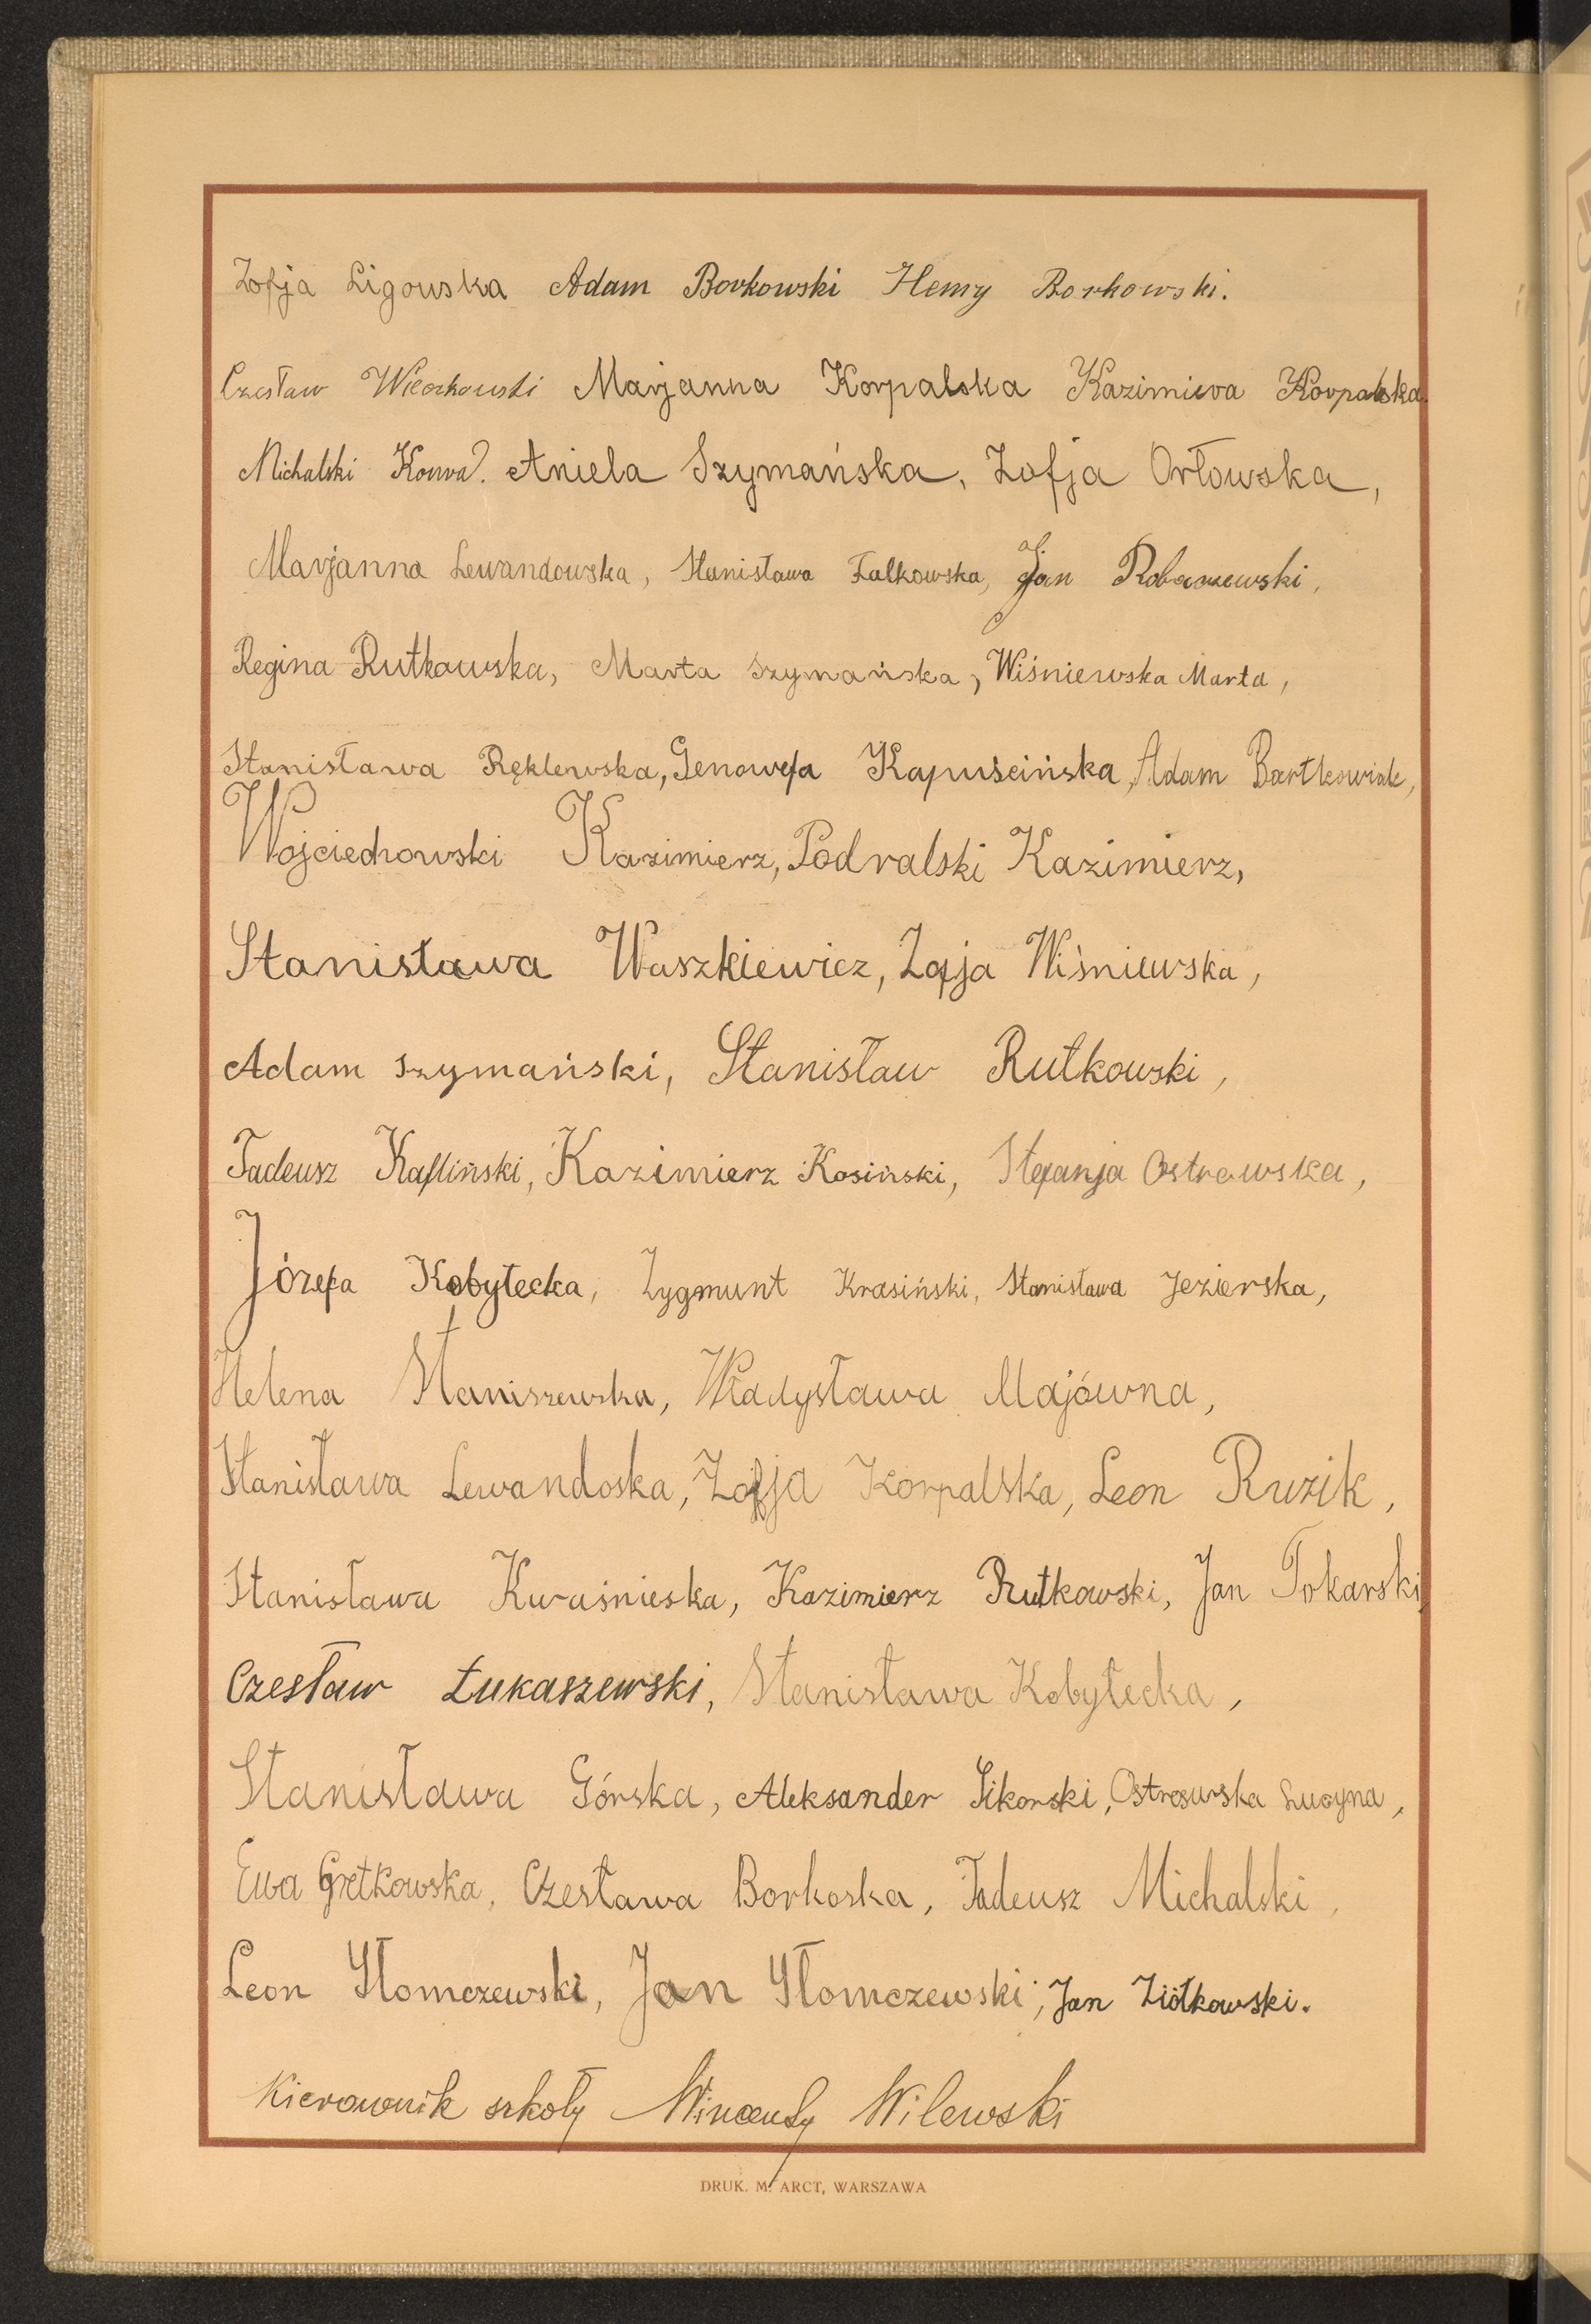 Zofja Ligowska Adam Borkowski Henry Borkowski.
Czesław Wieczkowski Marjanna Korpalska Kazimiera Korpalska.
Michalski Konrad. Aniela Szymańska, Zofja Orłowska,
Marjanna Lewandowska, Stanisława Falkowska, Jan Robaszewski,
Regina Rutkowska, Marta Szymańska, Wiśniewska Marta,
Stanisława Ręklewska, Genowefa Kapuścińska, Adam Bartkowiak,
Wojciechowski Kazimierz, Podralski Kazimierz,
Stanisława Waszkiewicz, Zofja Wiśniewska,
Adam Szymański, Stanisław Rutkowski,
Tadeusz Kafliński, Kazimierz Kosiński, Stefanja Ostrowska,
Józefa Kobyłecka, Zygmunt Krasiński, Stanisława Jezierska,
Helena Staniszewska, Władysława Majówna,
Stanisława Lewandoska, Zofja Korpalska, Leon Ruzik,
Stanisława Kwaśnieska, Kazimierz Rutkowski, Jan Tokarski,
Czesław Łukaszewski, Stanisława Kobyłecka,
Stanisława Górska, Aleksander Sikorski, Ostrowska Lucyna,
Ewa Gretkowska, Czesława Borkoska, Tadeusz Michalski,
Leon Słomczewski, Jan Słomczewski, Jan Ziółkowski.
Kierownik szkoły Wincenty Wilewski
DRUK. M. ARCT, WARSZAWA